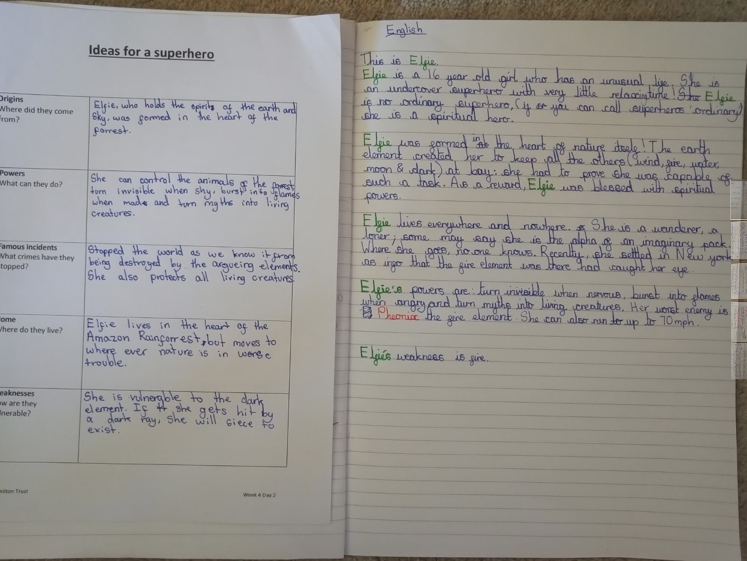 Ideas for a superhero
Origins
Where did they come
from?
Elfie, who holds the spirits of the earth and
sky, was formed in the heart of the
forrest.
Powers
What can they do?
She can control the animals of the forrest
turn invisible when shy, burst into flames
when made and turn myths into living
creatures.
Famous incidents
What crimes have they
stopped?
Stopped the world as we know it from
being destroyed by the argueing elements.
She also protects all living creatures
ome
here do they live?
Elfie lives in the heart of the
Amazon Rainforrest, but moves to
where ever nature is in worse
trouble.
eaknesses
ow are they
lnerable?
She is vulnerable to the dark
element. If she gets hit by
a dark ray, She will siece to
exist.
Week 4 Day 2
English
This is Elfie.
Elfie is a 16 year old girl who has an unusual life. She is
an undercover superhero with very little relaxing time! She Elfie
is no ordinary superhero, (if you can call superheros ordinary)
she is a spiritual hero.
Elfie was formed into the heart of nature itself! The earth
element created her to keep all the others (wind, fire, water,
moon & dark) at bay: she had to prove she was capable of
such a task. As a reward, Elfie was blessed with spiritual
powers.
Elfie lives everywhere and nowhere. She is a wanderer, a
loner; some may say she is the alpha of an imaginary pack.
Where she goes, no one knows. Recently, she settled in New york
as info that the fire element was there had caught her eye
Elfie's powers are: turn invisible when nervous, burst into flames
when angry and turn myths into living creatures. Her worst enemy is
Pheonix the fire element She can also run to up to 70mph.
Elfie's weakness is fire.